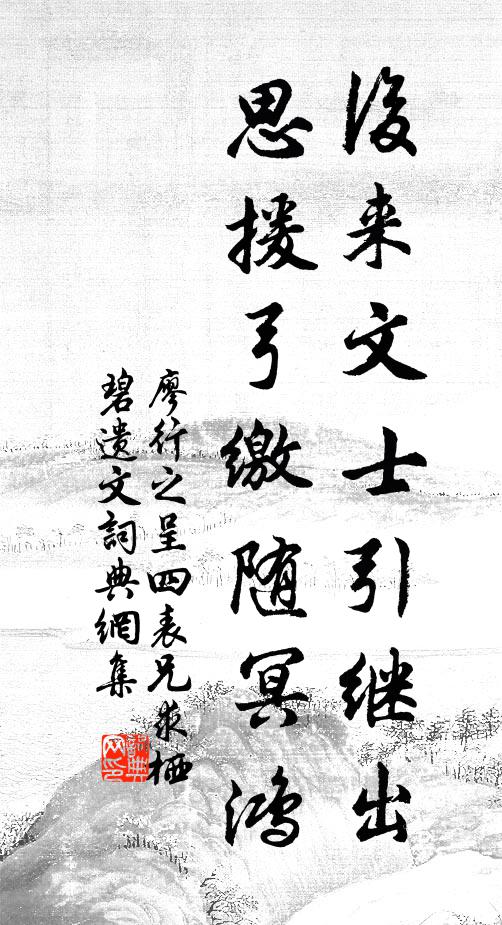 後来文士引继出
思援弓缴随冥鸿
廖行之呈四表兄求栖
碧遗文詞典網集
詞典网印